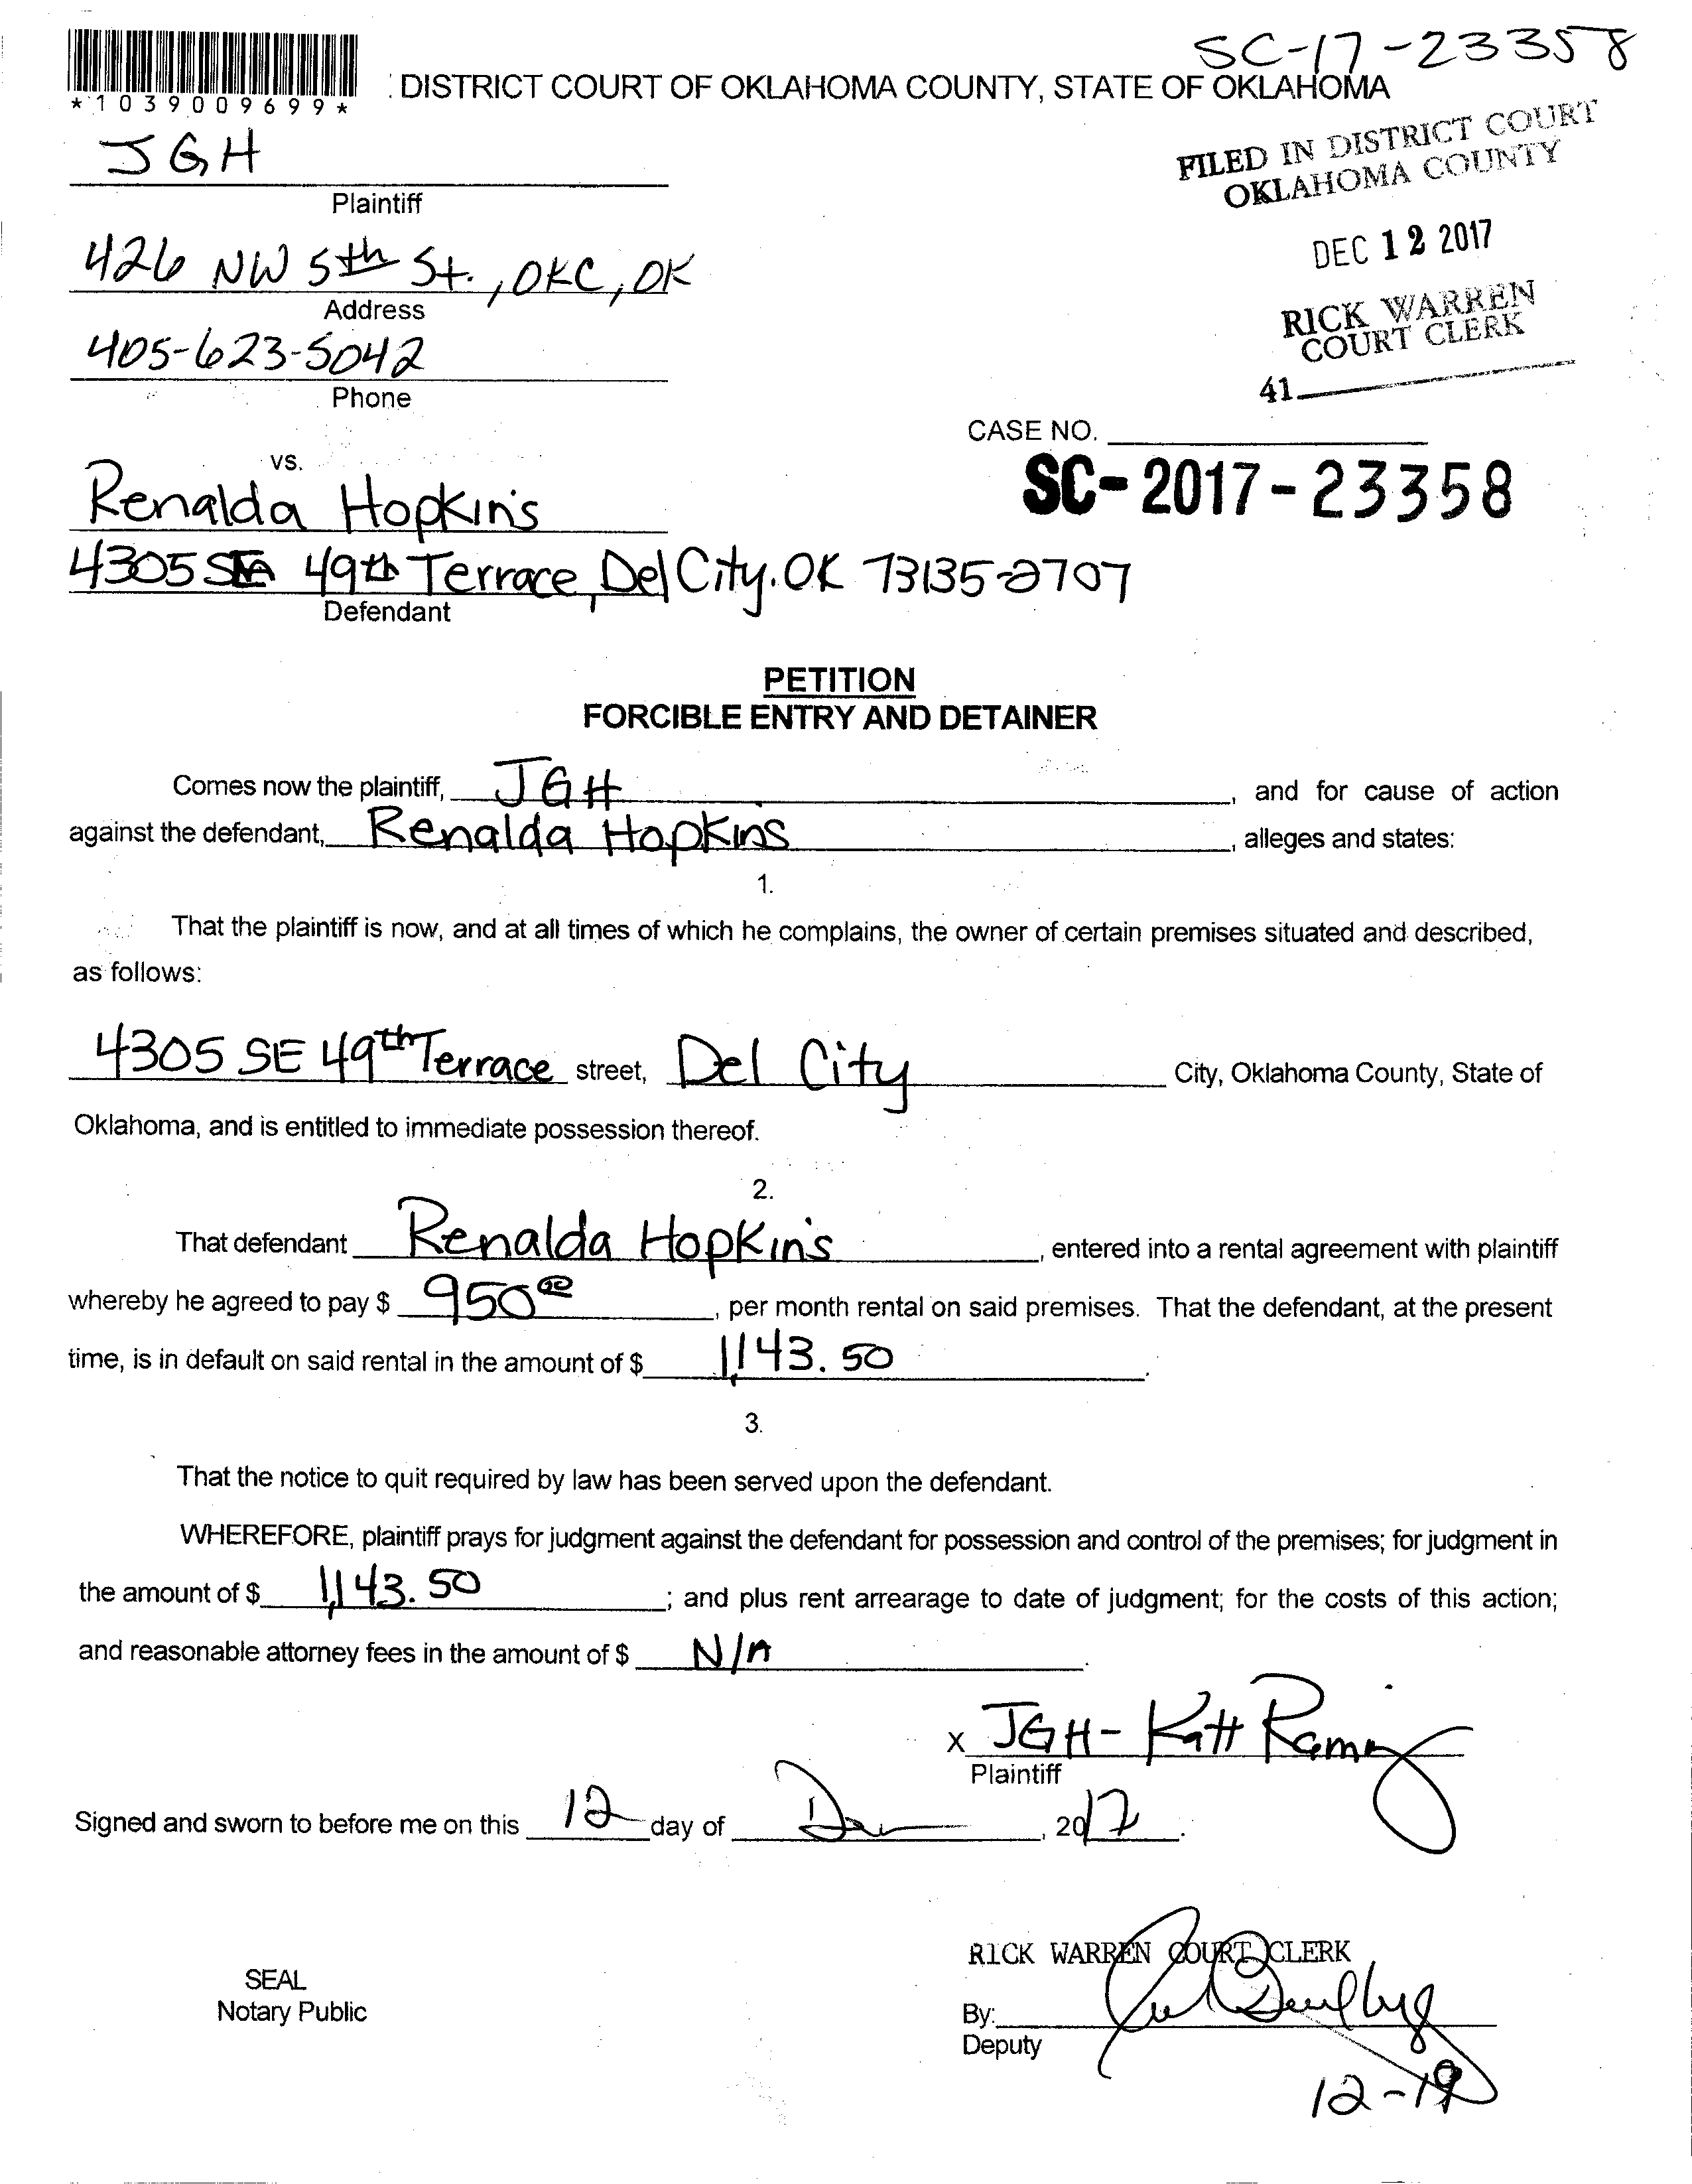 SC-17-23358
*1039009699*
DISTRICT COURT OF OKLAHOMA COUNTY, STATE OF OKLAHOMA
JGH
Plaintiff
FILED IN DISTRICT COURT
OKLAHOMA COUNTY
426 NW 5th St., OKC, OK
Address
DEC 12 2017
405-623-5042
Phone
RICK WARREN
COURT CLERK
41
CASE NO.
SC-2017-23358
vs.
Renalda Hopkins
4305 SE 49th Terrace, Del City, OK 73135-2707
Defendant
PETITION
FORCIBLE ENTRY AND DETAINER
Comes now the plaintiff, JGH, and for cause of action
against the defendant, Renalda Hopkins, alleges and states:
1.
That the plaintiff is now, and at all times of which he complains, the owner of certain premises situated and described,
as follows:
4305 SE 49th Terrace street, Del City City, Oklahoma County, State of
Oklahoma, and is entitled to immediate possession thereof.
2.
That defendant Renalda Hopkins, entered into a rental agreement with plaintiff
whereby he agreed to pay $ 950 00, per month rental on said premises. That the defendant, at the present
time, is in default on said rental in the amount of $ 1,143.50.
3.
That the notice to quit required by law has been served upon the defendant.
WHEREFORE, plaintiff prays for judgment against the defendant for possession and control of the premises; for judgment in
the amount of $ 1,143.50; and plus rent arrearage to date of judgment; for the costs of this action;
and reasonable attorney fees in the amount of $ N/A.
X JGH-
Plaintiff
Signed and sworn to before me on this 12 day of , 2017.
RICK WARREN COURT CLERK
SEAL
Notary Public
By:
Deputy
12-19